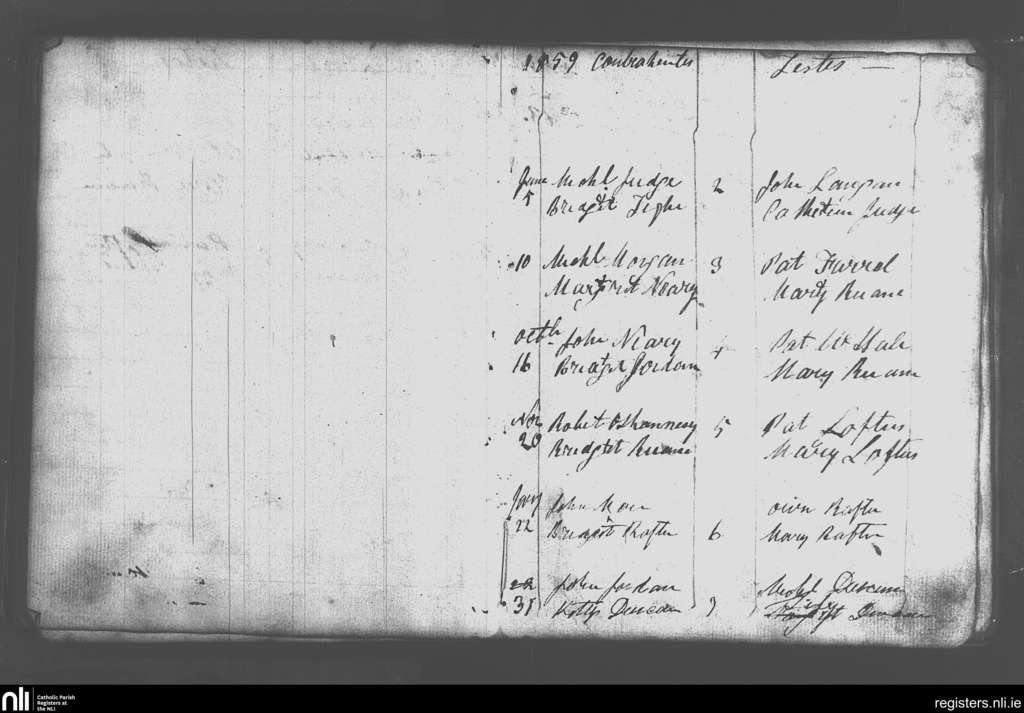 1859 Contrahentes Testes —
June Michl Judge 2 John Langan
5 Bridgit Tighe Catherine Judge
10 Michl Horgan 3 Pat Furrel
Margrit Neary Mary Ruane
Octbr John Neary 4 Pat McHale
16 Bridget Jordan Mary Ruane
Nov Robert OShannesy 5 Pat Loftus
20 Bridgitt Ruane Mary Loftus
Jany John More Owen Rafter
22 Bridgit Rafter 6 Mary Rafter
22 John Jordan Michl Duncan
31 Kitty Duncan 7
nli
Catholic Parish
Registers at
the NLI
registers.nli.ie